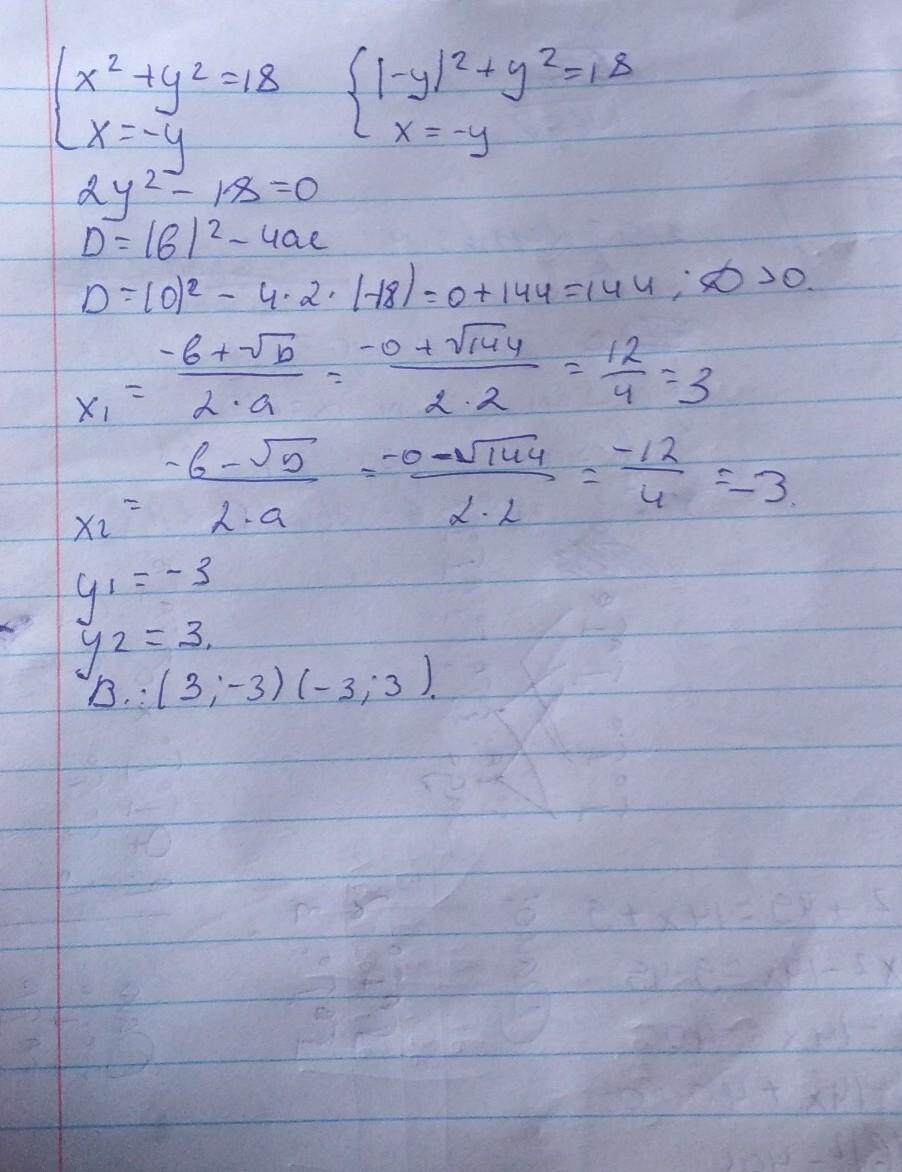 {x² + y² = 18 {(-y)² + y² = 18
x = -y x = -y
2y² - 18 = 0
D = (b)² - 4ac
D = (0)² - 4·2·(-18) = 0 + 144 = 144; D > 0.
x₁ = (-b + √D)/(2·a) = (-0 + √144)/(2·2) = 12/4 = 3
x₂ = (-b - √D)/(2·a) = (-0 - √144)/(2·2) = -12/4 = -3.
y₁ = -3
y₂ = 3.
В.: (3; -3) (-3; 3).